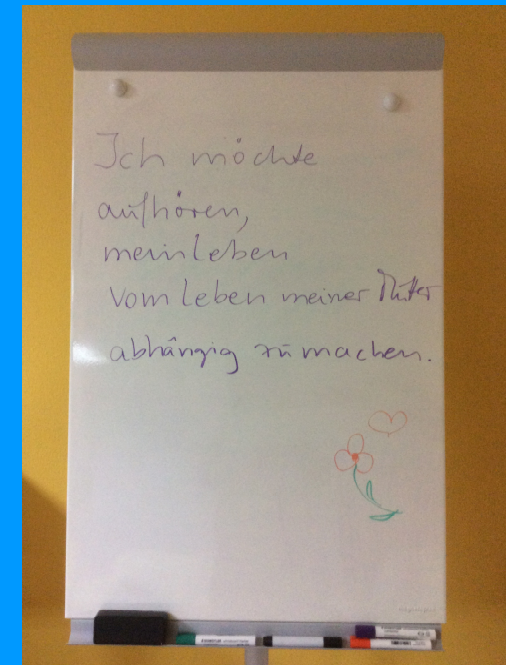 Ich möchte
aufhören,
mein Leben
vom Leben meiner Mutter
abhängig zu machen.